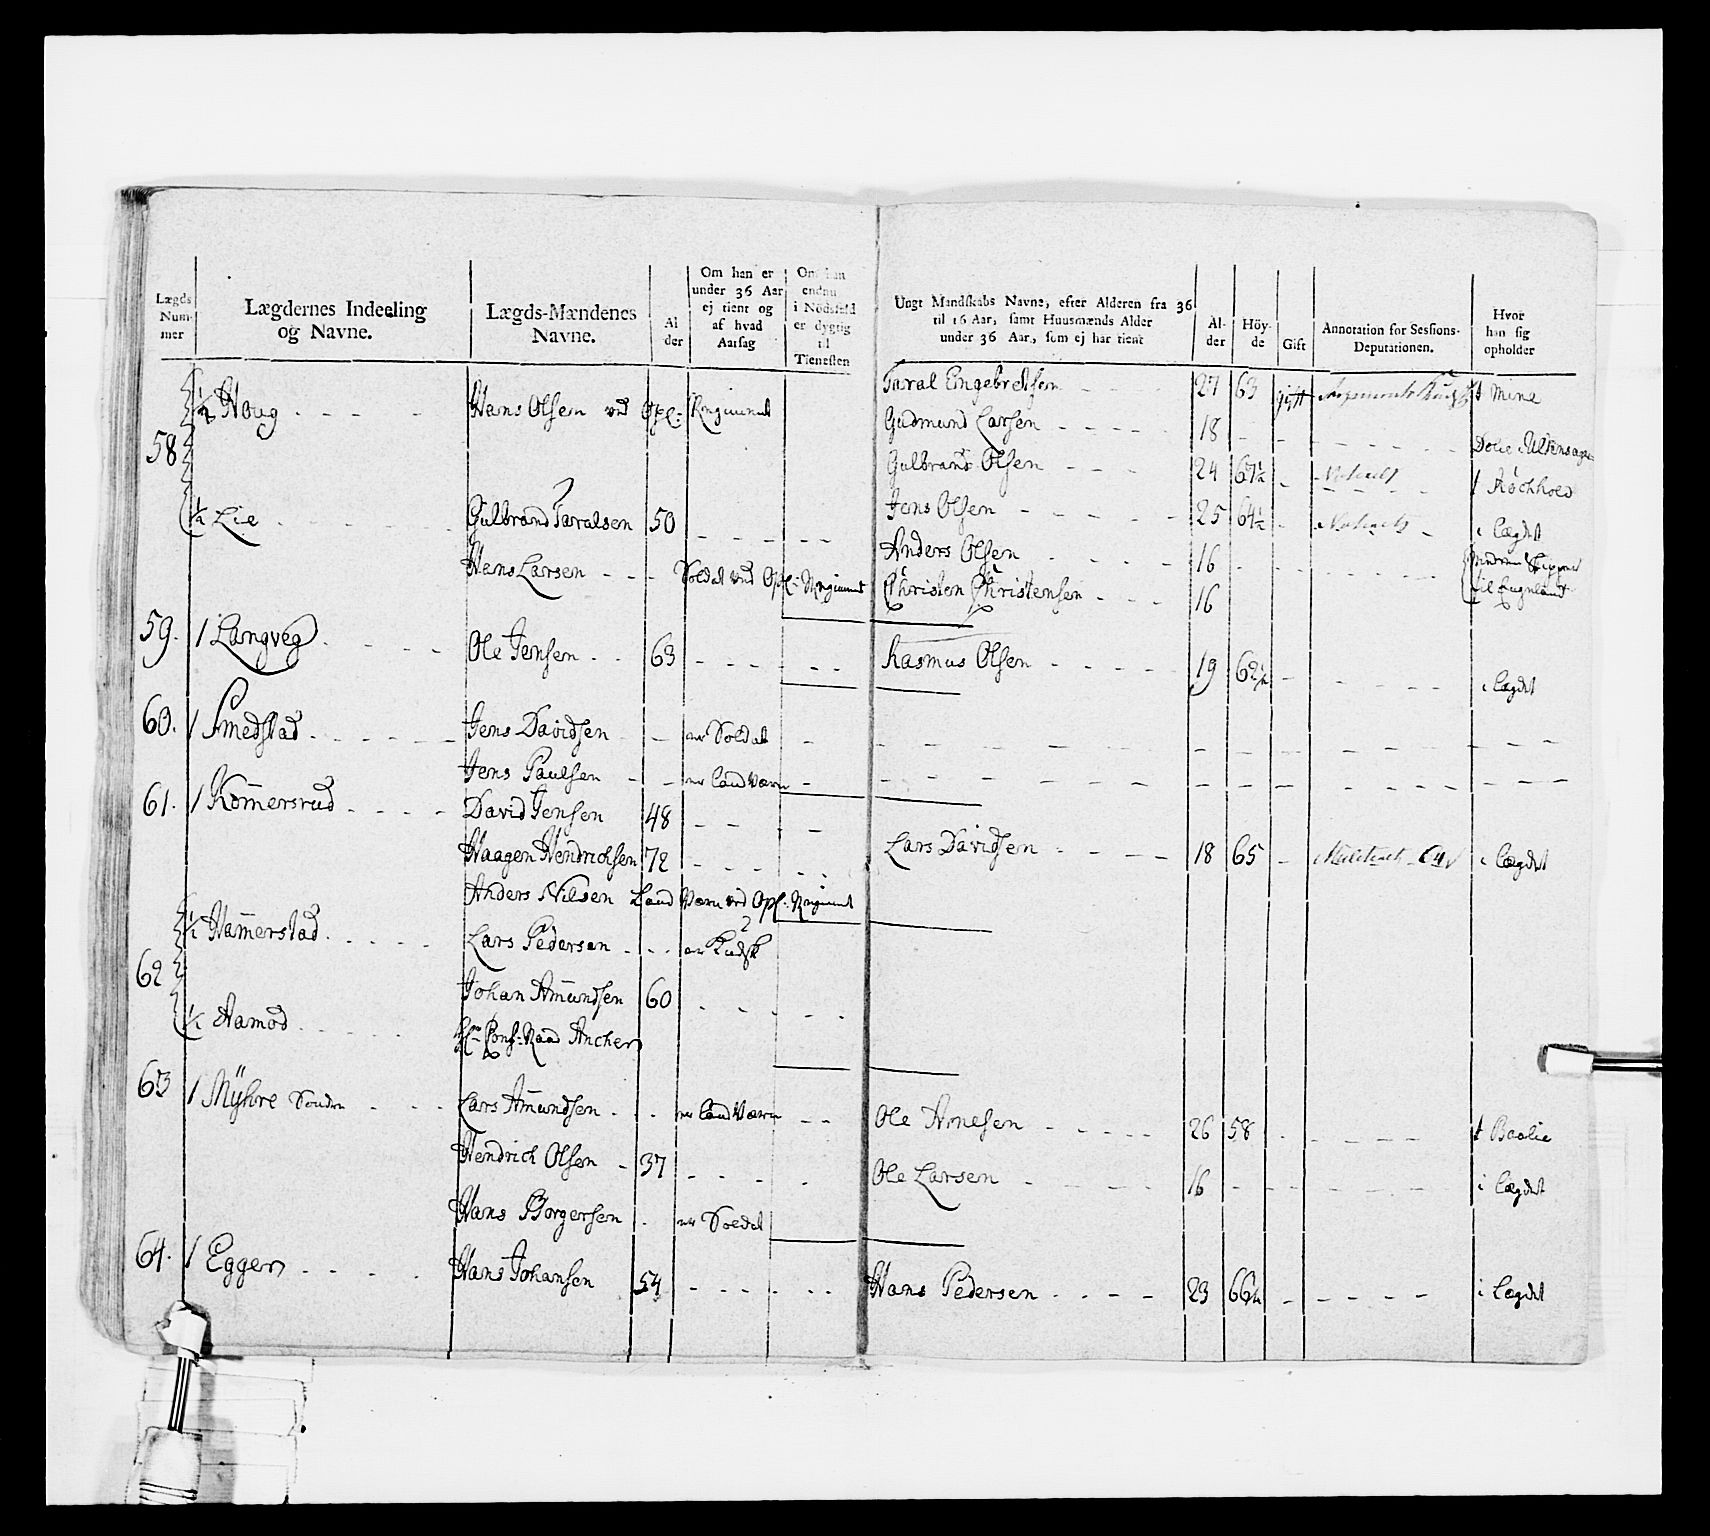 Lægds Nummer | Lægdernes Indeeling og Navne. | Lægds-Mændenes Navne. | Alder | Om han er under 36 Aar ej tient og af hvad Aarsag | Om han endnu i Nödsfald er dygtig til Tienesten | Ungt Mandskabs Navne, efter Alderen fra 36 til 16 Aar, samt Huusmænds Alder under 36 Aar, som ej har tient | Alder | Höyde | Gift | Annotation for Sessions-Deputationen. | Hvor han sig opholder
58 | ½ Houg | Hans Olsen ved Opl: Regiment | Taral Engebretsen | 27 | 63 | gift
Gudmund Larsen | 18
Gulbrand Olsen | 24 | 67½
½ Lie | Gulbrand Taralsen | 50 | Jens Olsen | 25 | 64½ | i Lægdet
Anders Olsen | 16
Hans Larsen | Soldat ved Opl: Regiment | Christen Christensen | 16 | til Engeland
59. | 1 Langveg | Ole Jensen | 63 | Rasmus Olsen | 19 | 62½ | i Lægdet
60. | 1 Smedstad | Jens Davidsen | er Soldat
Jens Paulsen | er Land Værn
61. | 1 Kom̄ersrud | David Jensen | 48
Haagen Hendrichsen | 72 | Lars Davidsen | 18 | 65 | 64 | i Lægdet
Anders Nilsen Land Værn ved Opl: Regiment
62 | ½ Ham̄erstad | Lars Pedersen | er Kudsk
Johan Am̄undsen | 60
½ Aamod | Hr Conf: Raad Ancher
63 | 1 Myhre Søndre | Lars Am̄undsen | er Land Værn | Ole Arnesen | 26 | 58 | Baalie
Hendrich Olsen | 37 | Ole Larsen | 16 | i Lægdet
Hans Borgersen | er Soldat
64. | 1 Eggen | Hans Johansen | 54 | Hans Pedersen | 23 | 66¼ | i Lægdet